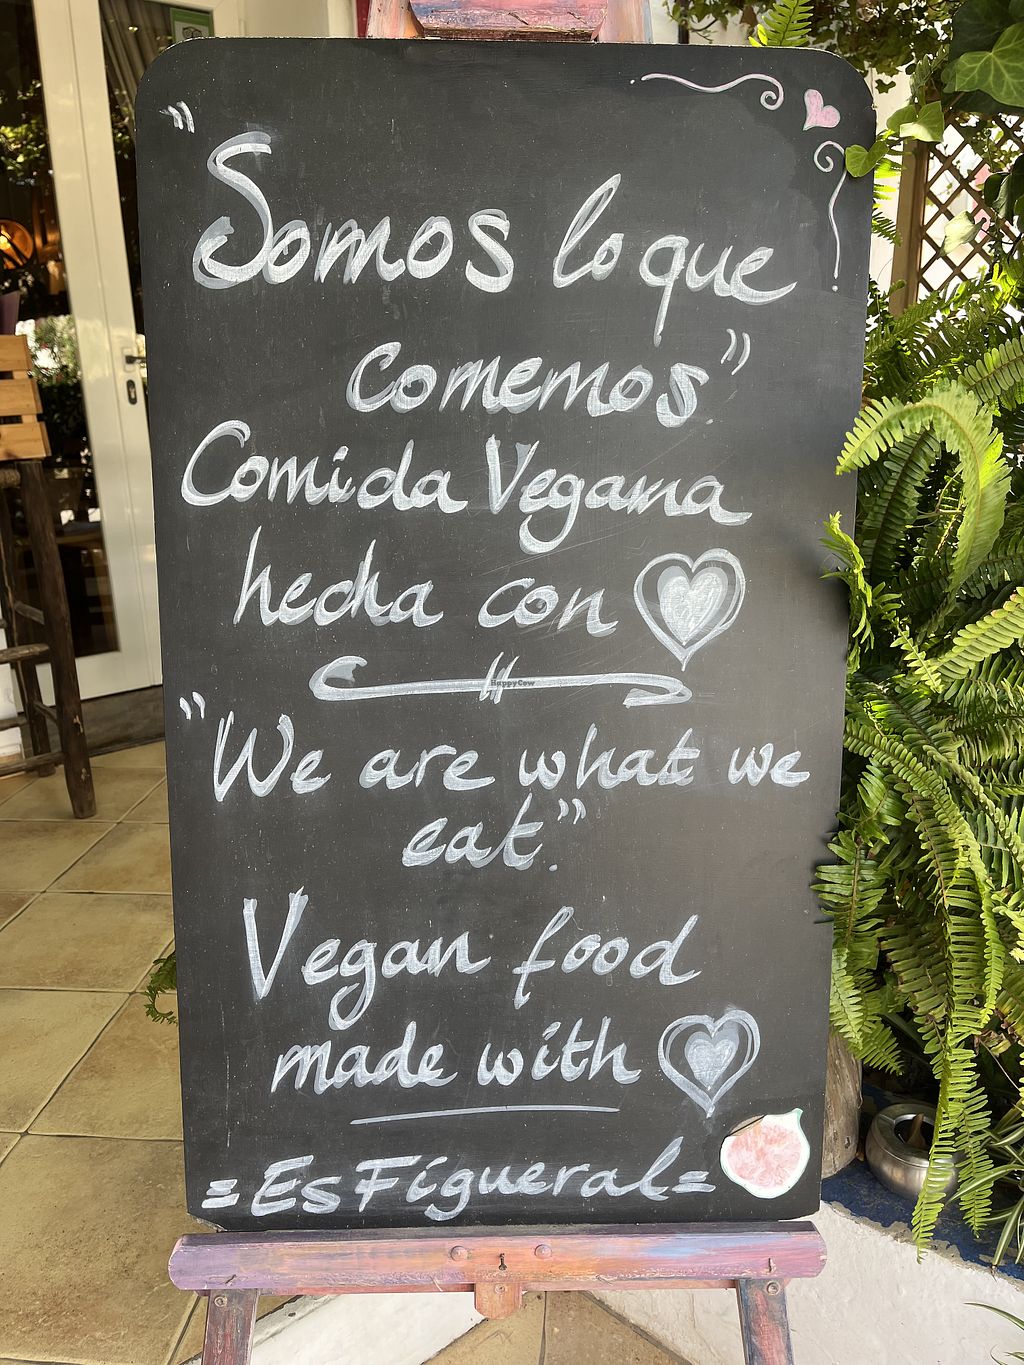 "Somos lo que
comemos"
Comida Vegana
hecha con
HappyCow
"We are what we
eat."
Vegan food
made with
=Es Figueral=